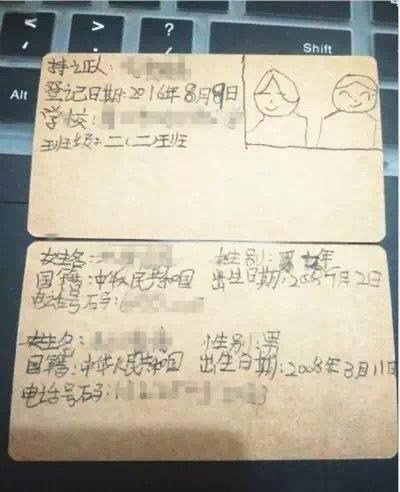 Shift
Alt
持证人:
登记日期:2016年8月9日
学校:
班级:二(二)班
姓名: 性别:女
国籍:中华人民共和国 出生日期:2008年7月2日
电话号码:
姓名: 性别:男
国籍:中华人民共和国 出生日期:2008年3月11日
电话号码: